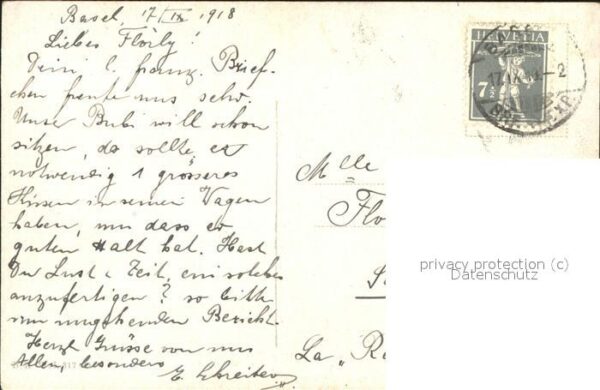 Basel, 17/IX 1918
Liebes Flörly!
Dein l. franz. Brief-
chen freute uns sehr.
Unser Bubi will schon
sitzen, da sollte er
notwendig 1 grösseres
Kissen in seinen Wagen
haben, um dass er
guten Halt hat. Hast
Du Lust u Zeit, ein solches
anzufertigen? so bitte
um umgehenden Bericht.
Herzl Grüsse von uns
Allen, besonders
E. Schreiber
HELVETIA
7½
17.IX.
Mlle
Flo
La „R
privacy protection (c)
Datenschutz